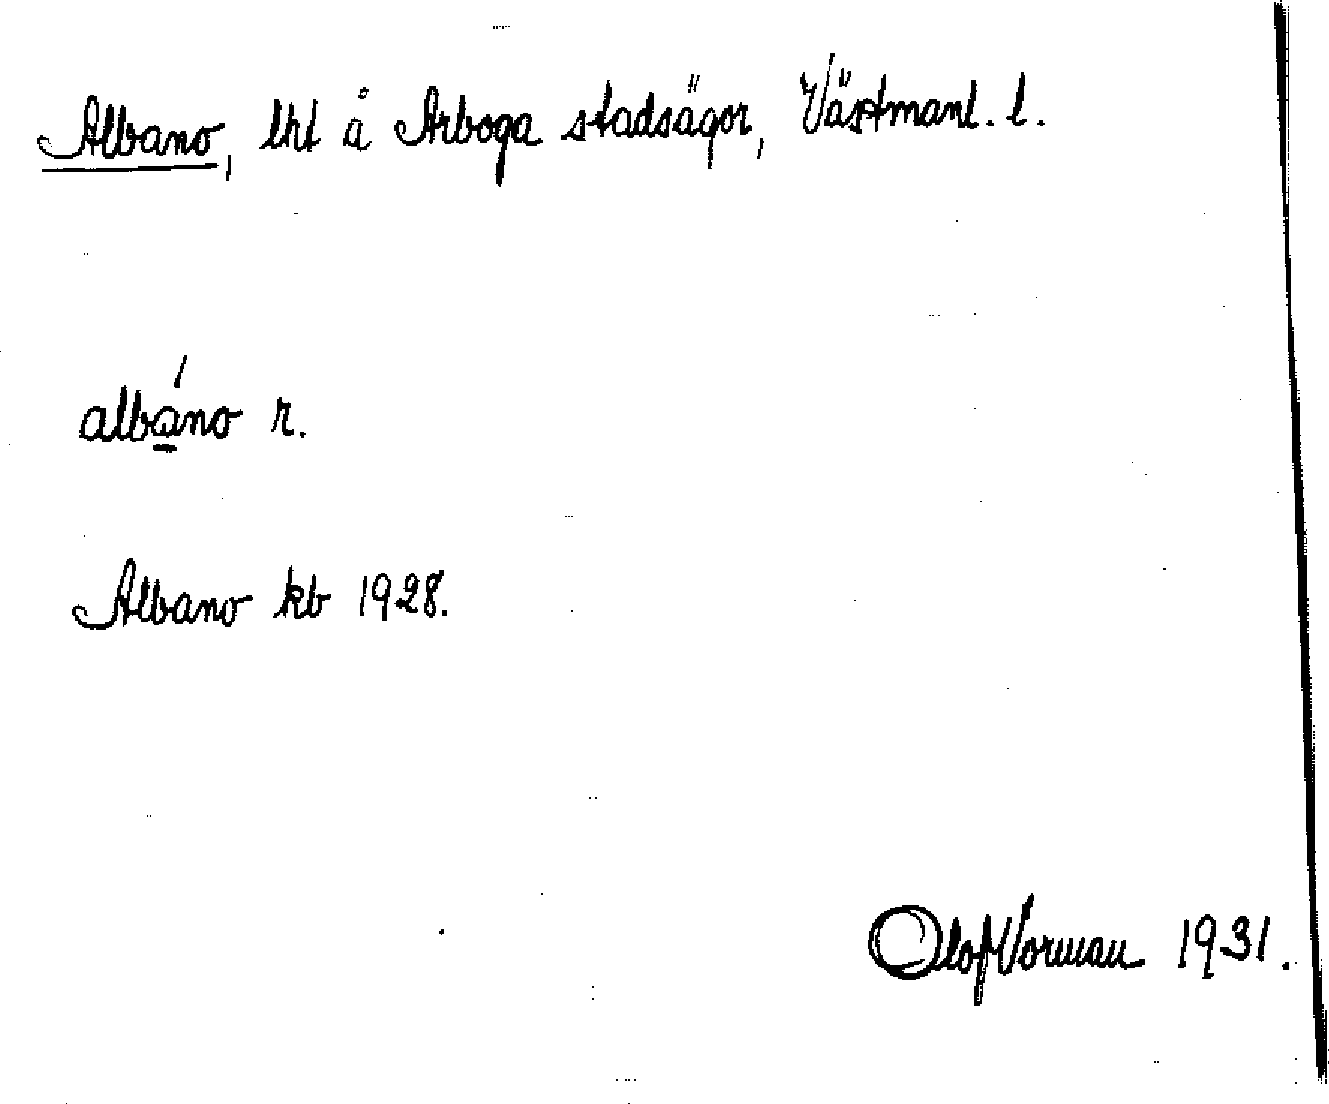 Albano, lht å Arboga stadsägor, Västmanl. l.
albáno r.
Albano kb 1928.
Olof Norman 1931.